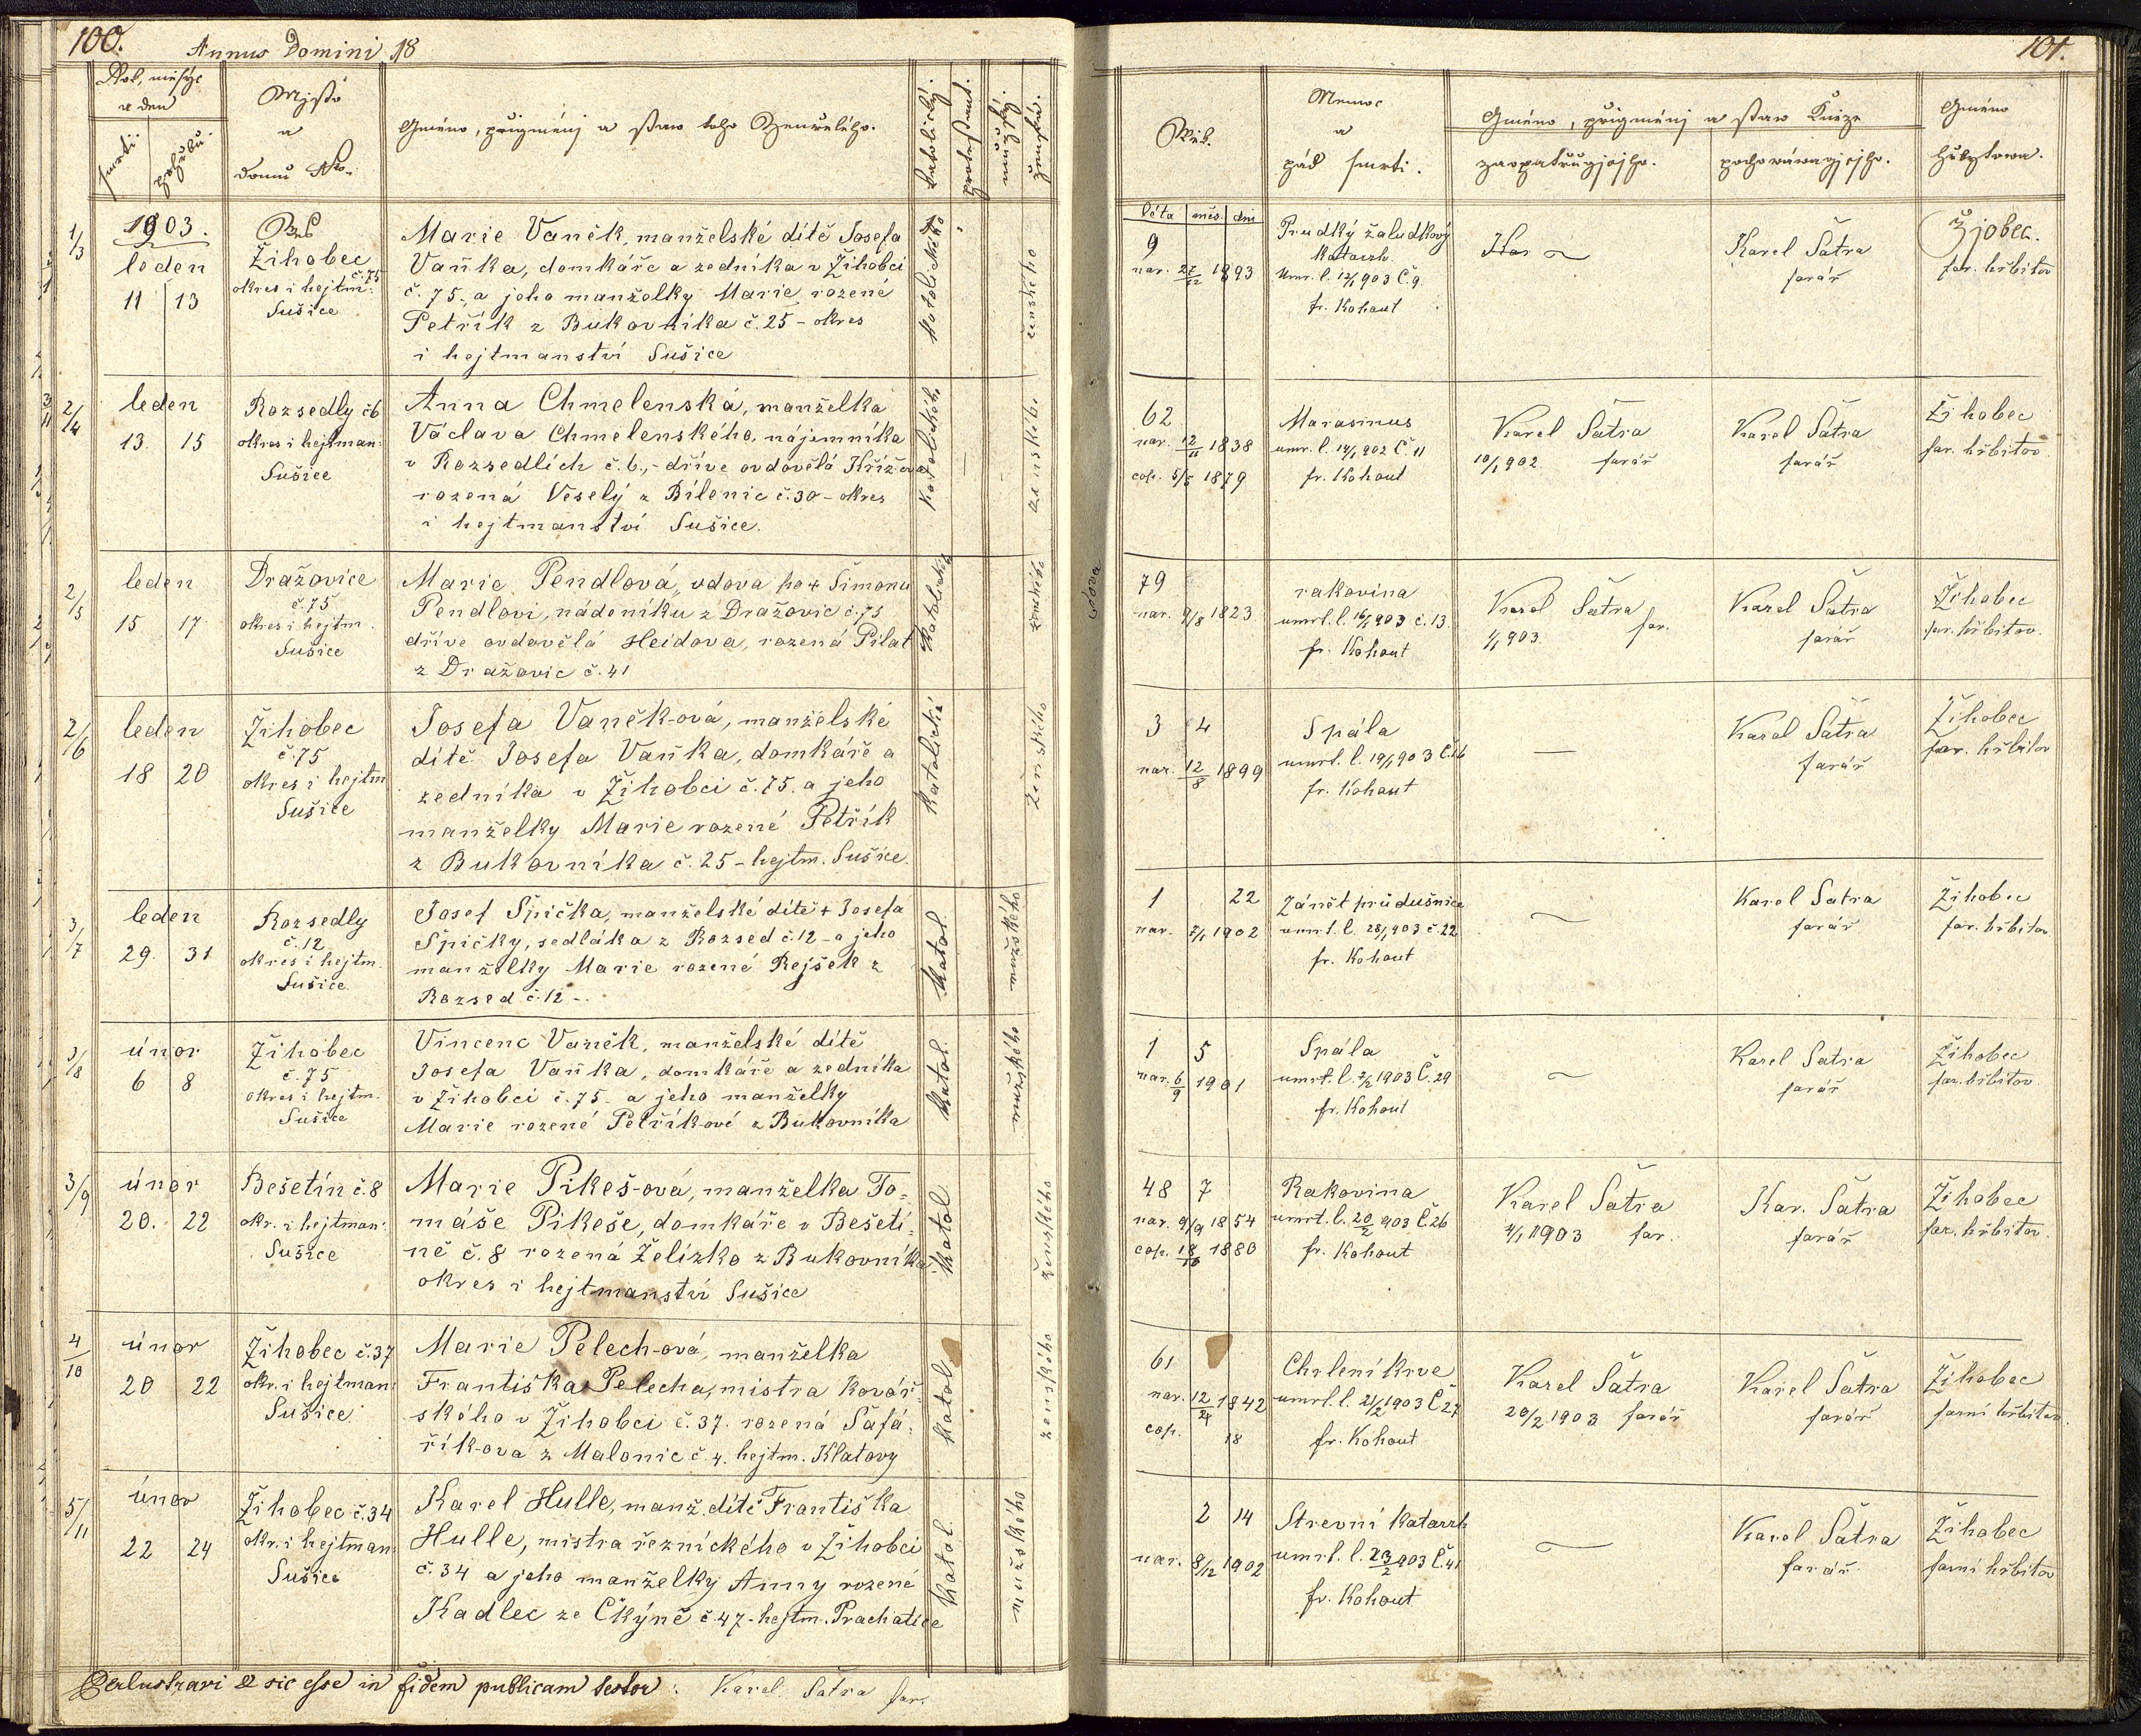 100.
Annus Domini 18
Rok, měsýc
a den
smrti
pohřbu
Mjsto
a
domu Nro.
Gméno, přigménj a staw toho Zemřelého.
katolický.
protestant.
mužský.
ženská.
1/3
1903.
leden
11 13
Ves
Žihobec
č. 75
okres i hejtm.
Sušice
Marie Vaněk, manželské dítě Josefa
Vaňka, domkáře a zedníka v Žihobci
č. 75., a jeho manželky Marie rozené
Petřík z Bukovníka č. 25 – okres
i hejtmanství Sušice
katolického
ženského
2/4
leden
13. 15
Rozsedly č 6
okres i hejtman.
Sušice
Anna Chmelenská, manželka
Václava Chmelenského, nájemníka
v Rozsedlích č. 6., – dříve ovdovělá Křížova
rozená Veselý z Bílenic č. 30 – okres
i hejtmanství Sušice.
katolického
ženského
2/5
leden
15 17
Dražovice
č. 75
okres i hejtm.
Sušice
Marie Pendlová, vdova po + Šimonu
Pendlovi, nádeníku z Dražovic č. 75
dříve ovdovělá Heidova, rozená Pilat
z Dražovic č. 41
katolická
ženského
vdova
2/6
leden
18 20
Žihobec
č. 75
okres i hejtm
Sušice
Josefa Vaněk-ová, manželské
dítě Josefa Vaňka, domkáře a
zedníka v Žihobci č. 75. a jeho
manželky Marie rozené Petřík
z Bukovníka č. 25 – hejtm. Sušice.
katolické
ženského
3/7
leden
29. 31
Rozsedly
č. 12
okres i hejtm.
Sušice
Josef Špička, manželské dítě + Josefa
Špičky, sedláka z Rozsed č. 12 – a jeho
manželky Marie rozené Rejšek z
Rozsed č. 12 –.
katol.
mužského
3/8
únor
6 8
Žihobec
č. 75
okres i hejtm.
Sušice
Vincenc Vaněk, manželské dítě
Josefa Vaňka, domkáře a zedníka
v Žihobci č. 75 – a jeho manželky
Marie rozené Petříkové z Bukovníka
katol.
mužského
3/9
únor
20. 22
Bešetín č. 8
okr. i hejtman.
Sušice
Marie Pikeš-ová, manželka To-
máše Pikeše, domkáře v Bešetí-
ně č. 8 rozená Želízko z Bukovníka
okres i hejtmanství Sušice
katol.
ženského
4/10
únor
20 22
Žihobec č. 37
okr. i hejtman.
Sušice
Marie Pelech-ová, manželka
Františka Pelecha, mistra kovář-
ského v Žihobci č. 37. rozená Šafa-
řík-ova z Malonic č. 4. hejtm. Klatovy
katol.
ženského
5/11
únor
22 24
Žihobec č. 34
okr. i hejtman.
Sušice
Karel Hulle, manž. dítě Františka
Hulle, mistra řeznického v Žihobci
č. 34 a jeho manželky Anny rozené
Kadlec ze Čkýně č. 47 – hejtm. Prachatice
katol.
mužského
Perlustravi & sic esse in fidem publicam testor: Karel Šatra far.
101.
Wěk.
léta měs. dni
Nemoc
a
pád smrti.
Gméno, přigménj a staw Kněze
zaopatřugjcjho.
pochowáwagjcjho.
Gméno
hřbytowa.
9
nar. 27/12 1893
Prudký žaludkový
katarrh.
Umr. l. 12/1 903 Č. 9.
fr. Kohout
Kar
Karel Šatra
farář
Žjobec.
far. hřbitov
62
nar. 12/11 1838
cop. 5/5 1879
Marasmus
umr. l. 14/1 902 Č. 11
fr. Kohout
Karel Šatra
10/1 902. farář
Karel Šatra
farář
Žihobec
far. hřbitov
79
nar. 9/8 1823
rakovina
umrt. l. 16/1 903 č. 13.
fr. Kohout
Karel Šatra
1/1 903. far.
Karel Šatra
farář
Žihobec
far. hřbitov.
3 4
nar. 12/8 1899
Spála
umrt. l. 19/1 903 Č. 16
fr. Kohout
—
Karel Šatra
farář
Žihobec
far. hřbitov
1 22
nar. 7/1 1902
Zánět průdušnice
umrt. l. 28/1 903 č. 22
fr. Kohout
Karel Šatra
farář
Žihobec
far. hřbitov
1 5
nar. 6/9 1901
Spála
umrt. l. 7/2 1903 Č. 29
fr. Kohout
Karel Šatra
farář
Žihobec
far. hřbitov
48 7
nar. 9/9 1854
cop. 18/10 1880
Rakovina
umrt. l. 20/2 903 Č. 26
fr. Kohout
Karel Šatra
4/1 1903 far.
Kar. Šatra
farář
Žihobec
far. hřbitov.
61
nar. 12/24 1842
cop. 18
Chrlení krve
umrt. l. 21/2 1903 Č. 27
fr. Kohout
Karel Šatra
20/2 1903 farář
Karel Šatra
farář
Žihobec
farní hřbitov.
2 14
nar. 8/12 1902
Střevní katarrh
umrt. l. 23/2 903 Č. 41
fr. Kohout
Karel Šatra
farář
Žihobec
farní hřbitov